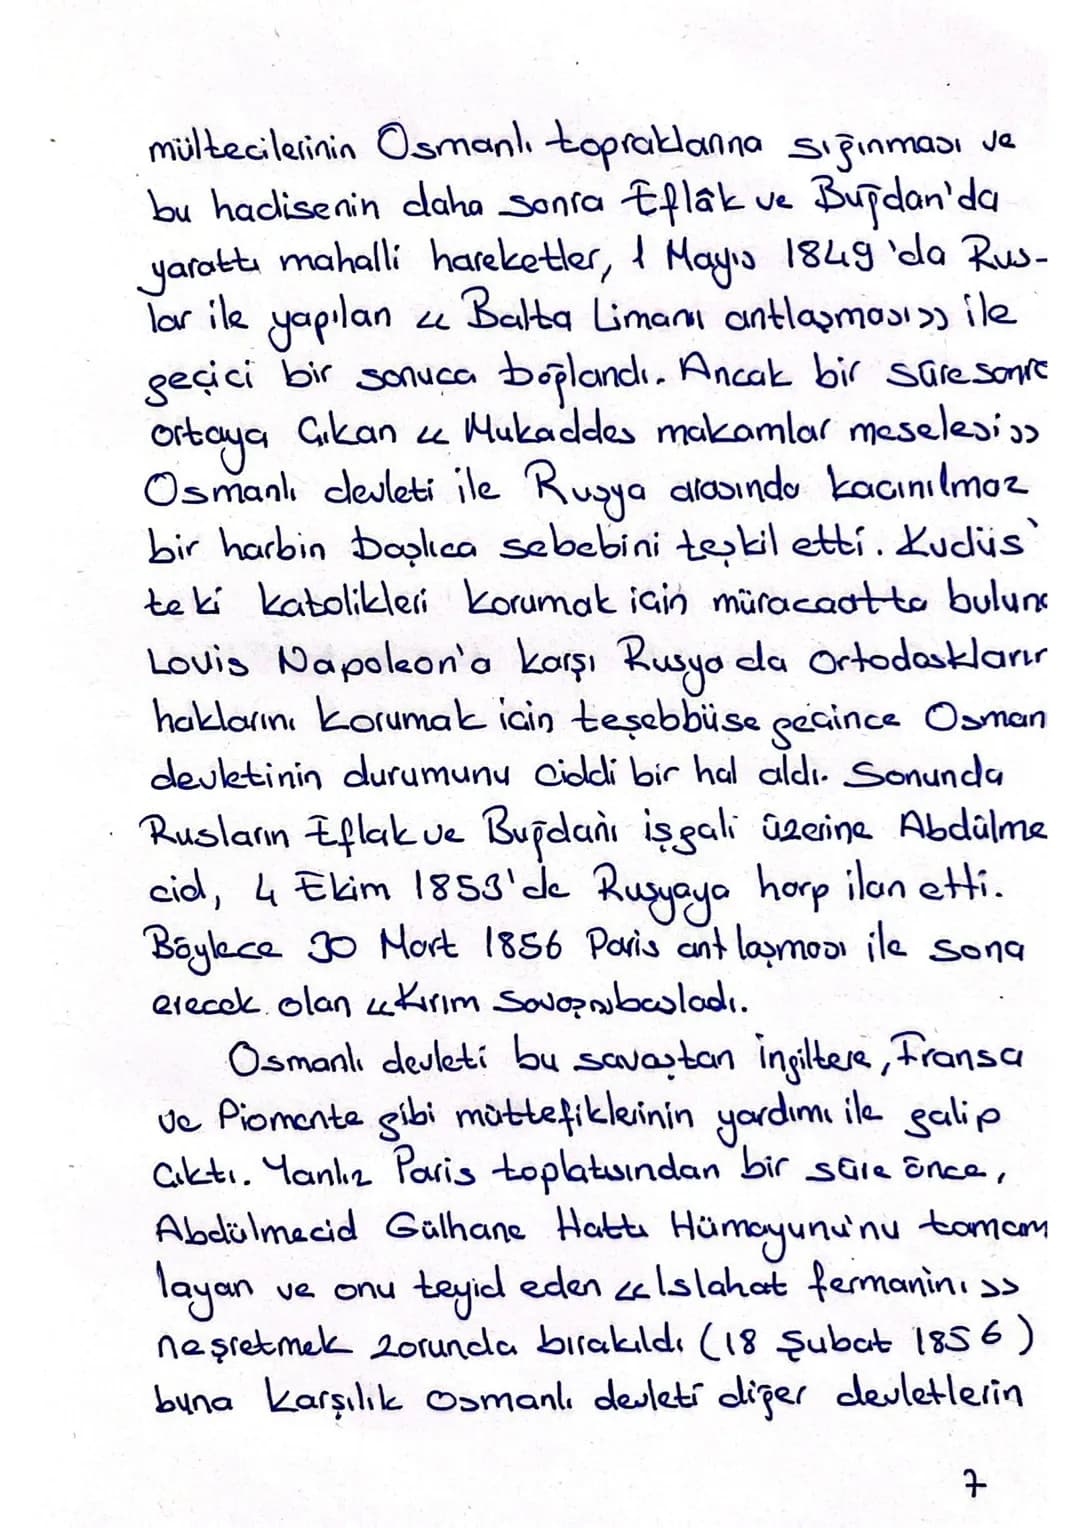 mültecilerinin Osmanlı topraklarına sığınması ve
bu hadisenin daha sonra Eflâk ve Buğdan'da
yarattı mahalli hareketler, 1 Mayıs 1849 'da Rus-
lar ile yapılan « Balta Limanı antlaşması » ile
geçici bir sonuca bağlandı. Ancak bir süre sonra
ortaya Çıkan « Mukaddes makamlar meselesi »
Osmanlı devleti ile Rusya arasında kacınılmaz
bir harbin başlıca sebebini teşkil etti. Kudüs'
teki katolikleri korumak için müracaatta buluna
Louis Napoleon'a karşı Rusya da Ortodoskların
haklarını korumak icin teşebbüse geçince Osman
devletinin durumunu ciddi bir hal aldı. Sonunda
Rusların Eflak ve Buğdanı işgali üzerine Abdülme
cid, 4 Ekim 1853'de Rusyaya harp ilan etti.
Böylece 30 Mart 1856 Paris antlaşması ile sona
erecek olan «Kırım Savaşı» başladı.
Osmanlı devleti bu savaştan İngiltere, Fransa
ve Piomente gibi müttefiklerinin yardımı ile galip
Çıktı. Yanlız Paris toplatısından bir süre önce,
Abdülmecid Gülhane Hattı Hümayunu'nu tamam
layan ve onu teyid eden « Islahat fermanını »
neşretmek zorunda bırakıldı (18 Şubat 1856)
buna karşılık Osmanlı devleti diğer devletlerin
7